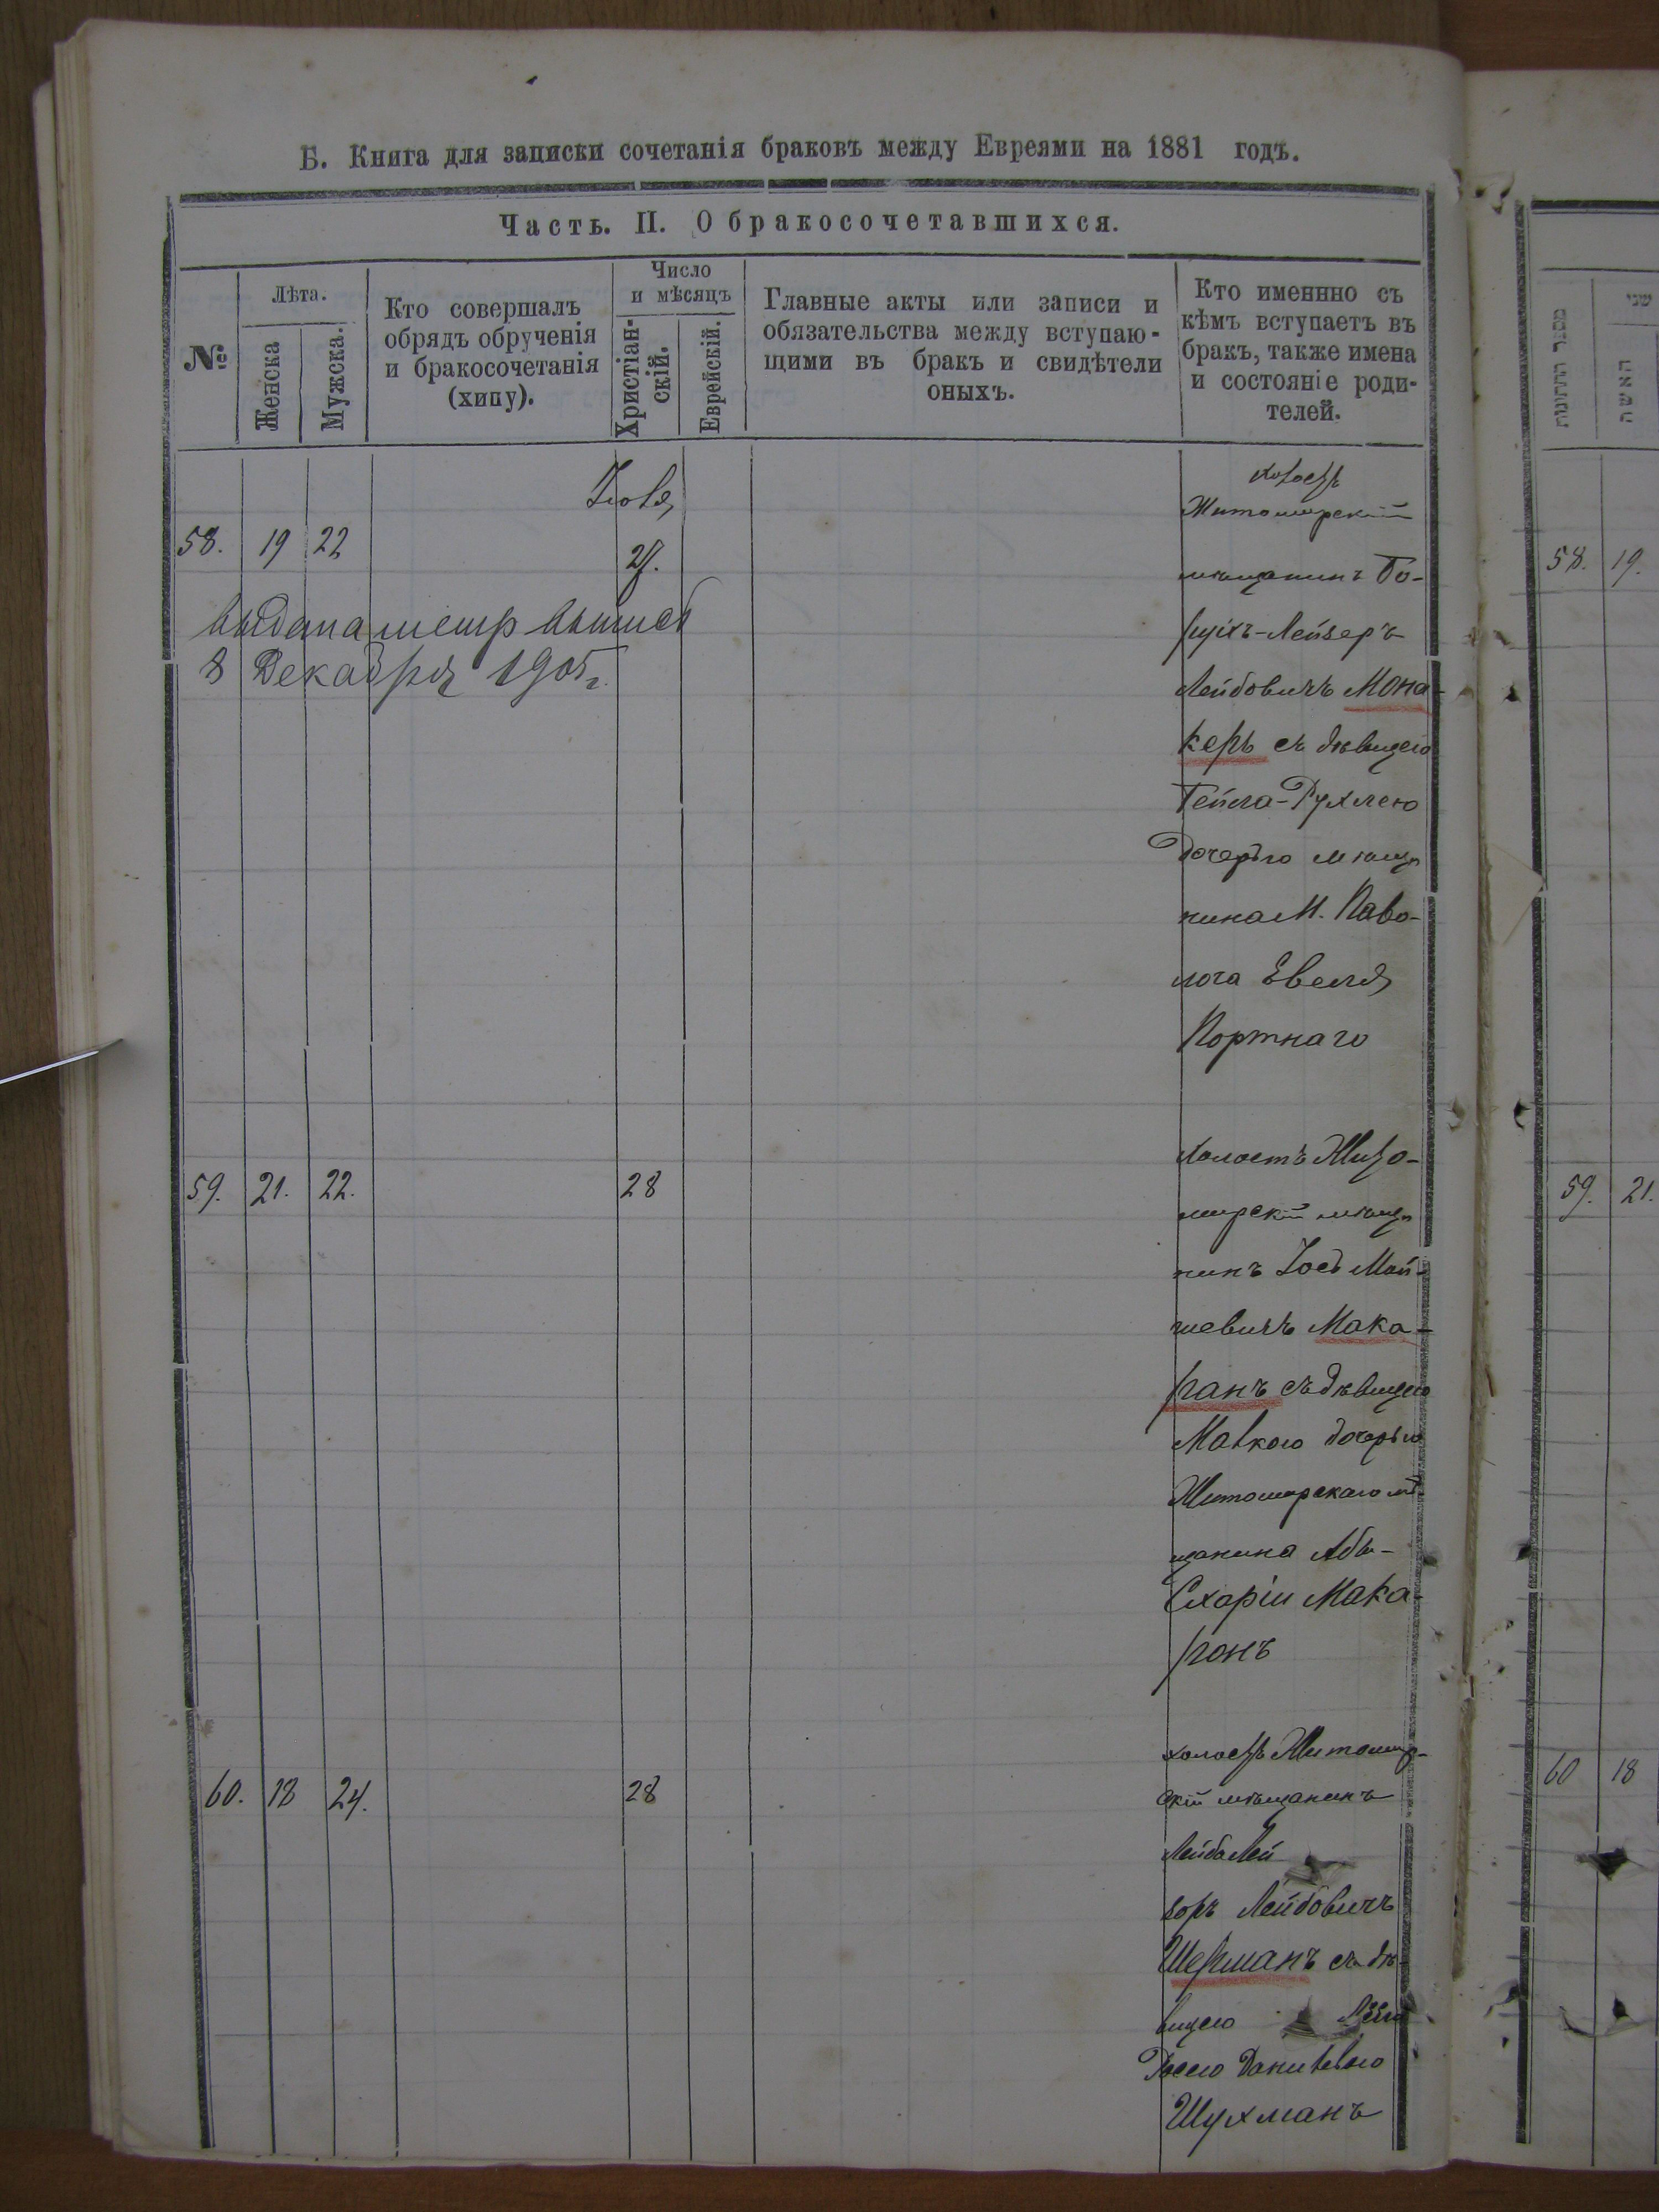 Б. Книга для записки сочетанія браковъ между Евреями на 1881 годъ.
Часть. II. О бракосочетавшихся.
№
Лѣта.
Женска
Мужска.
Кто совершалъ
обрядъ обрученія
и бракосочетанія
(хипу).
Число
и мѣсяцъ
Христіан-
скій.
Еврейскій.
Главные акты или записи и
обязательства между вступаю-
щими въ бракъ и свидѣтели
оныхъ.
Кто именнно съ
кѣмъ вступаетъ въ
бракъ, также имена
и состояніе роди-
телей.
58. 19 22
Выдана метр выпись
8 Декабря 1905 г.
холостъ
Житомирскій
мѣщанинъ Бо-
рухъ-Лейзеръ
Лейбовичъ Мона-
керъ съ дѣвицею
Гейла-Рухлею
Дочерью мѣща
нина М. Паво-
лоча Евеля
Портнаго
59. 21. 22. 28
холостъ Жито-
мирскій мѣща
нинъ Іось Мой-
шевичъ Мака-
ронъ съ дѣвицею
Малкою дочерью
Житомирскаго мѣ
щанина Абы-
Схаріи Мака-
ронъ
60. 18 24. 28
холостъ Житомир-
скій мѣщанинъ
Лейба Лей
зоръ Лейбовичъ
Шерманъ съ дѣ-
вицею
Росею
Шухманъ
מספר החתונות
שני
האישה
58. 19.
59. 21.
60 18